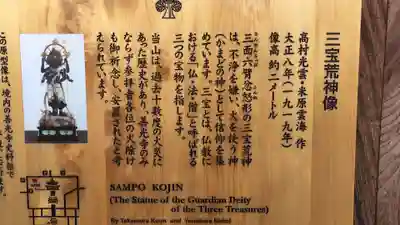 三宝荒神像
高村光雲・米原雲海 作
大正八年(一九一九年)
像高 約二メートル
三面六臂忿怒形の三宝荒神
は、不浄を嫌い、火を使う神
(かまどの神)として信仰を集
めています。三宝とは、仏教に
おける「仏・法・僧」と呼ばれる
三つの宝物を指します。
当山は、過去十数度の火災に
あった歴史があり、善光寺のみ
ならず参拝者各位の火除け
も御祈念し、安置されたと考
えられています。
この原型像は、境内の善光寺史料館で
SAMPO KOJIN
(The Statue of the Guardian Deity
of the Three Treasures)
By Takamura Koun and Yonehara Unkai